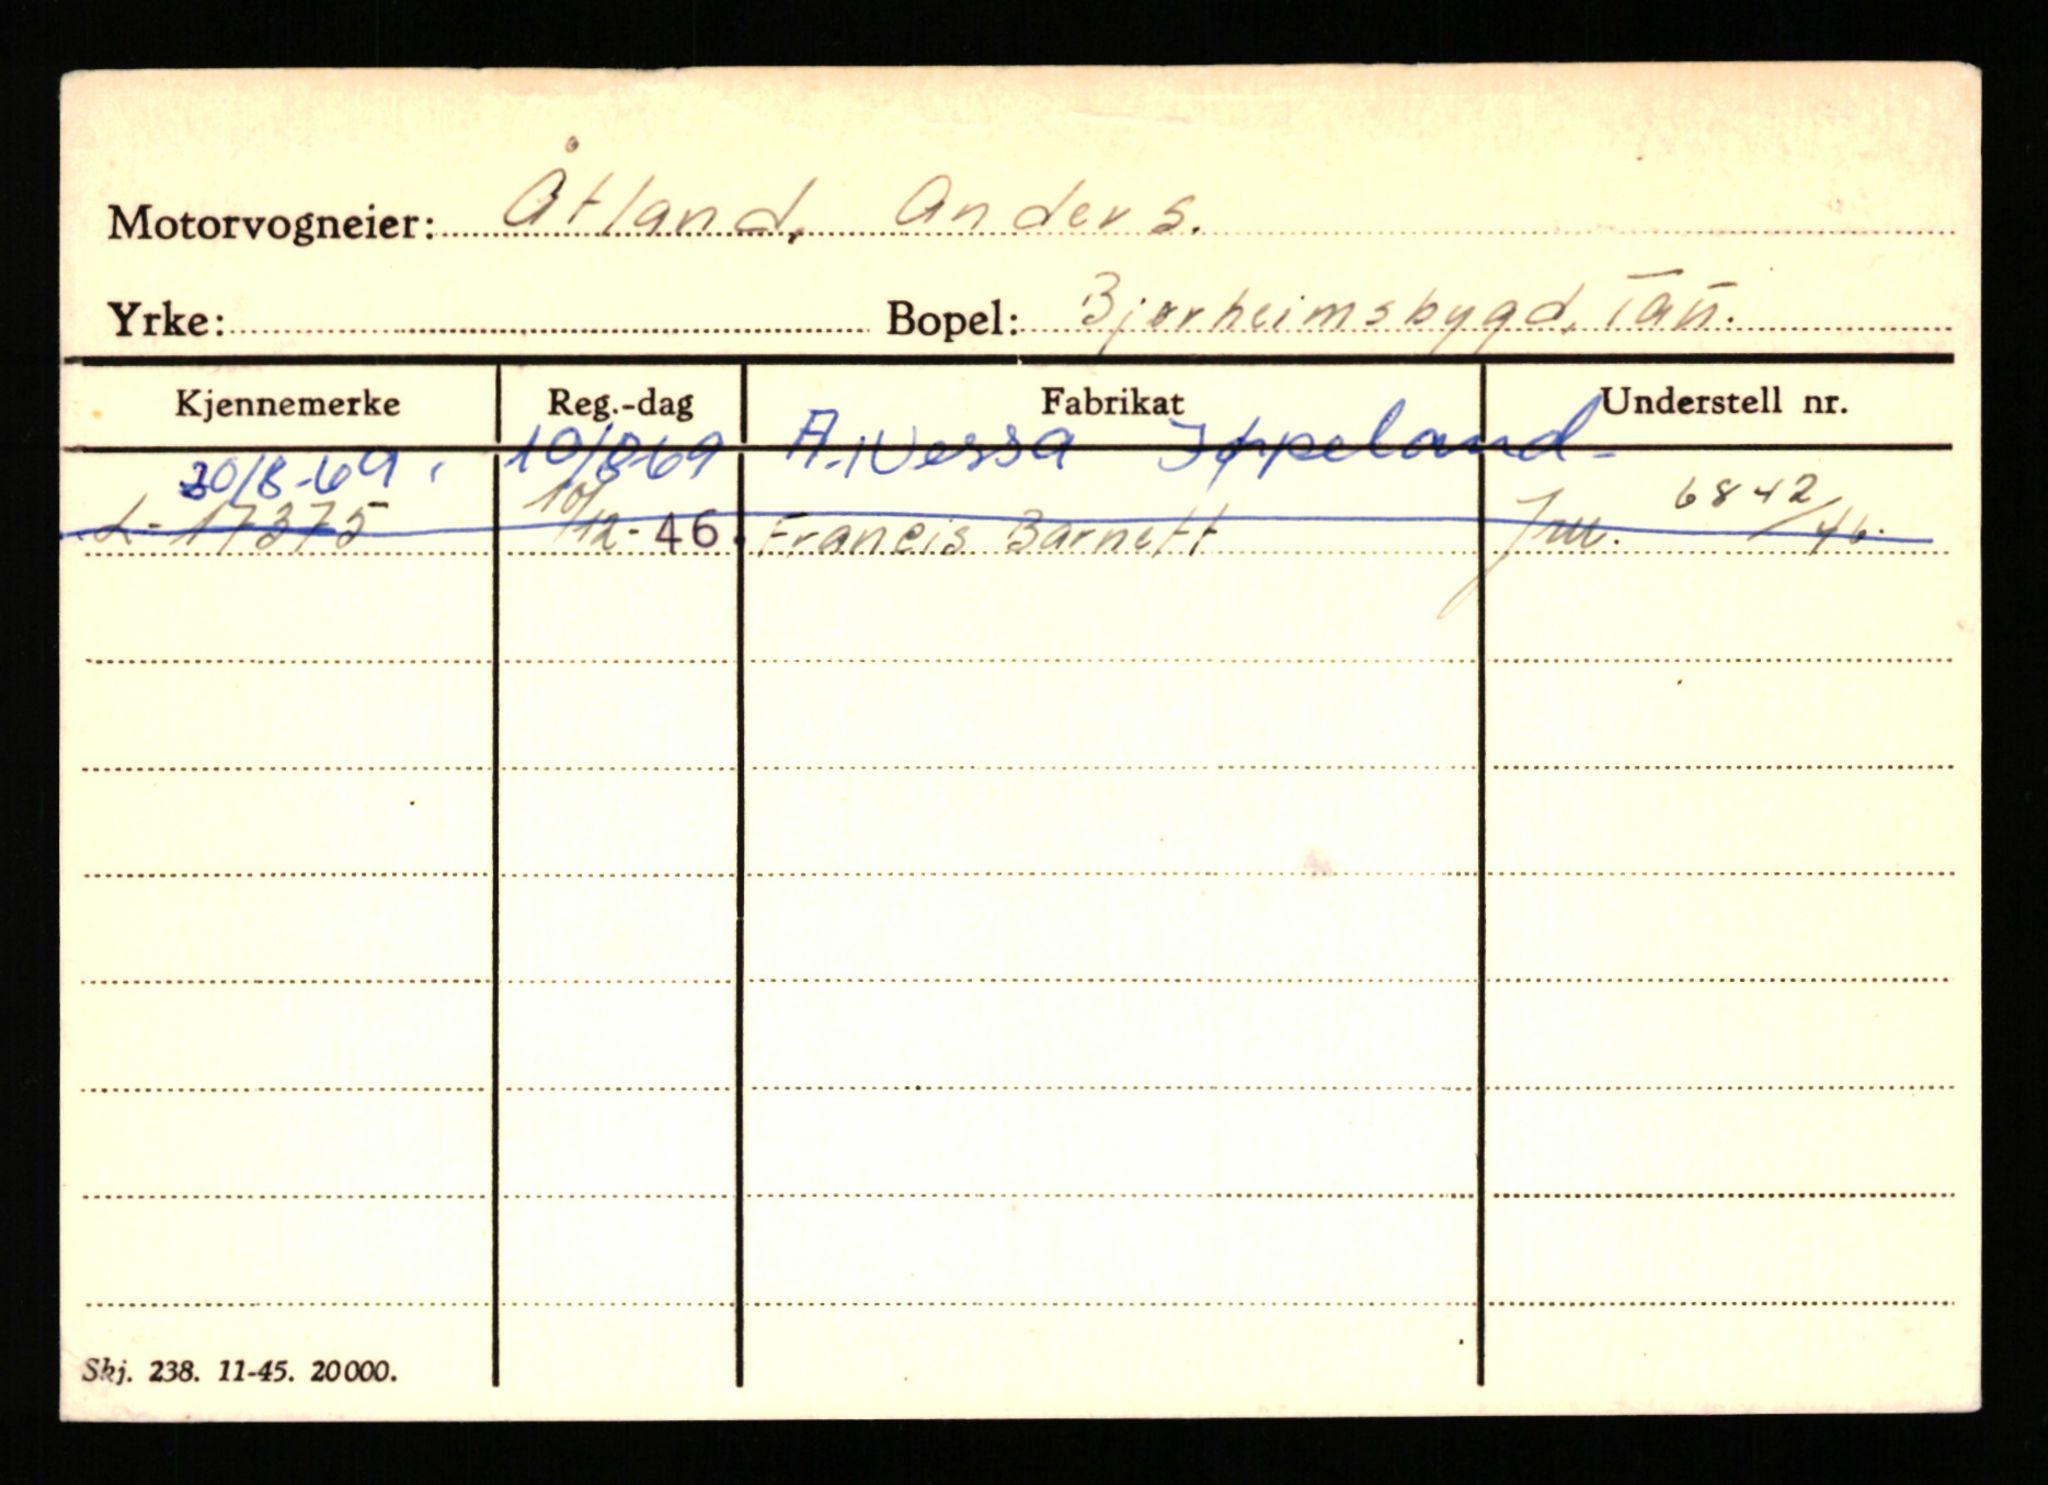 Motorvogneier: Åtland, Anders.
Yrke: Bopel: Bjørheimsbygd, Tau.
Kjennemerke Reg.-dag Fabrikat Understell nr.
30/8-69. 10/8-69 A. Wessa
L-17375 10/12-46. Francis Barnett 6842/46.
Skj. 238. 11-45. 20000.